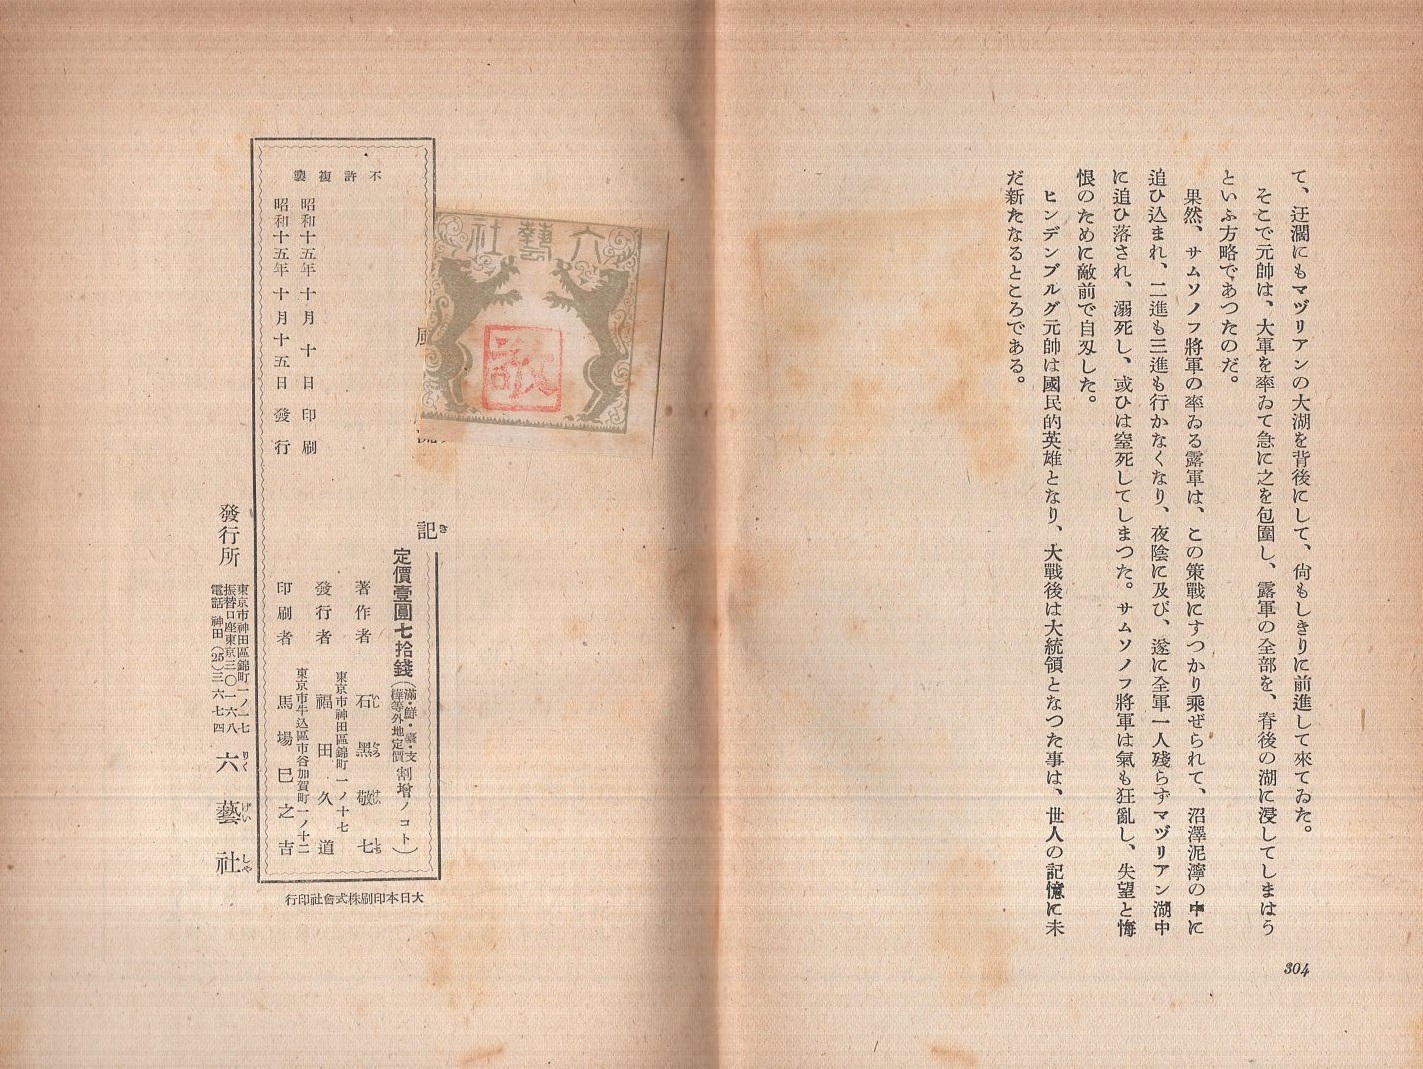 て、迂濶にもマヅリアンの大湖を背後にして、尙もしきりに前進して來てゐた。
そこで元帥は、大軍を率ゐて急に之を包圍し、露軍の全部を、脊後の湖に浸してしまはう
といふ方略であつたのだ。
果然、サムソノフ將軍の率ゐる露軍は、この策戰にすつかり乘ぜられて、沼澤泥濘の中に
追ひ込まれ、二進も三進も行かなくなり、夜陰に及び、遂に全軍一人殘らずマヅリアン湖中
に追ひ落され、溺死し、或ひは窒死してしまつた。サムソノフ將軍は氣も狂亂し、失望と悔
恨のために敵前で自刄した。
ヒンデンブルグ元帥は國民的英雄となり、大戰後は大統領となつた事は、世人の記憶に未
だ新たなるところである。
304
六藝社
敬
風
流
記き
定價壹圓七拾錢(滿・鮮・臺・支樺等外地定價割增ノコト)
著作者 石黑敬七
東京市神田區錦町一ノ十七
發行者 福田久道
東京市牛込區市谷加賀町一ノ十二
印刷者 馬場巳之吉
不許複製
昭和十五年十月十日印刷
昭和十五年十月十五日發行
大日本印刷株式會社印行
發行所
東京市神田區錦町一ノ一七
振替口座東京三〇一六八
電話神田(25)三六七四
六りく藝げい社しや